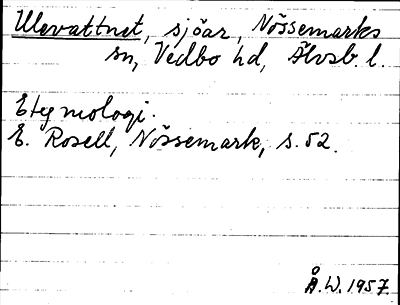 Ulevattnet, sjöar, Nössemarks
sn, Vedbo hd, Älvsb. l.
Etymologi.
E. Rosell, Nössemark, s. 52.
Å.W. 1957